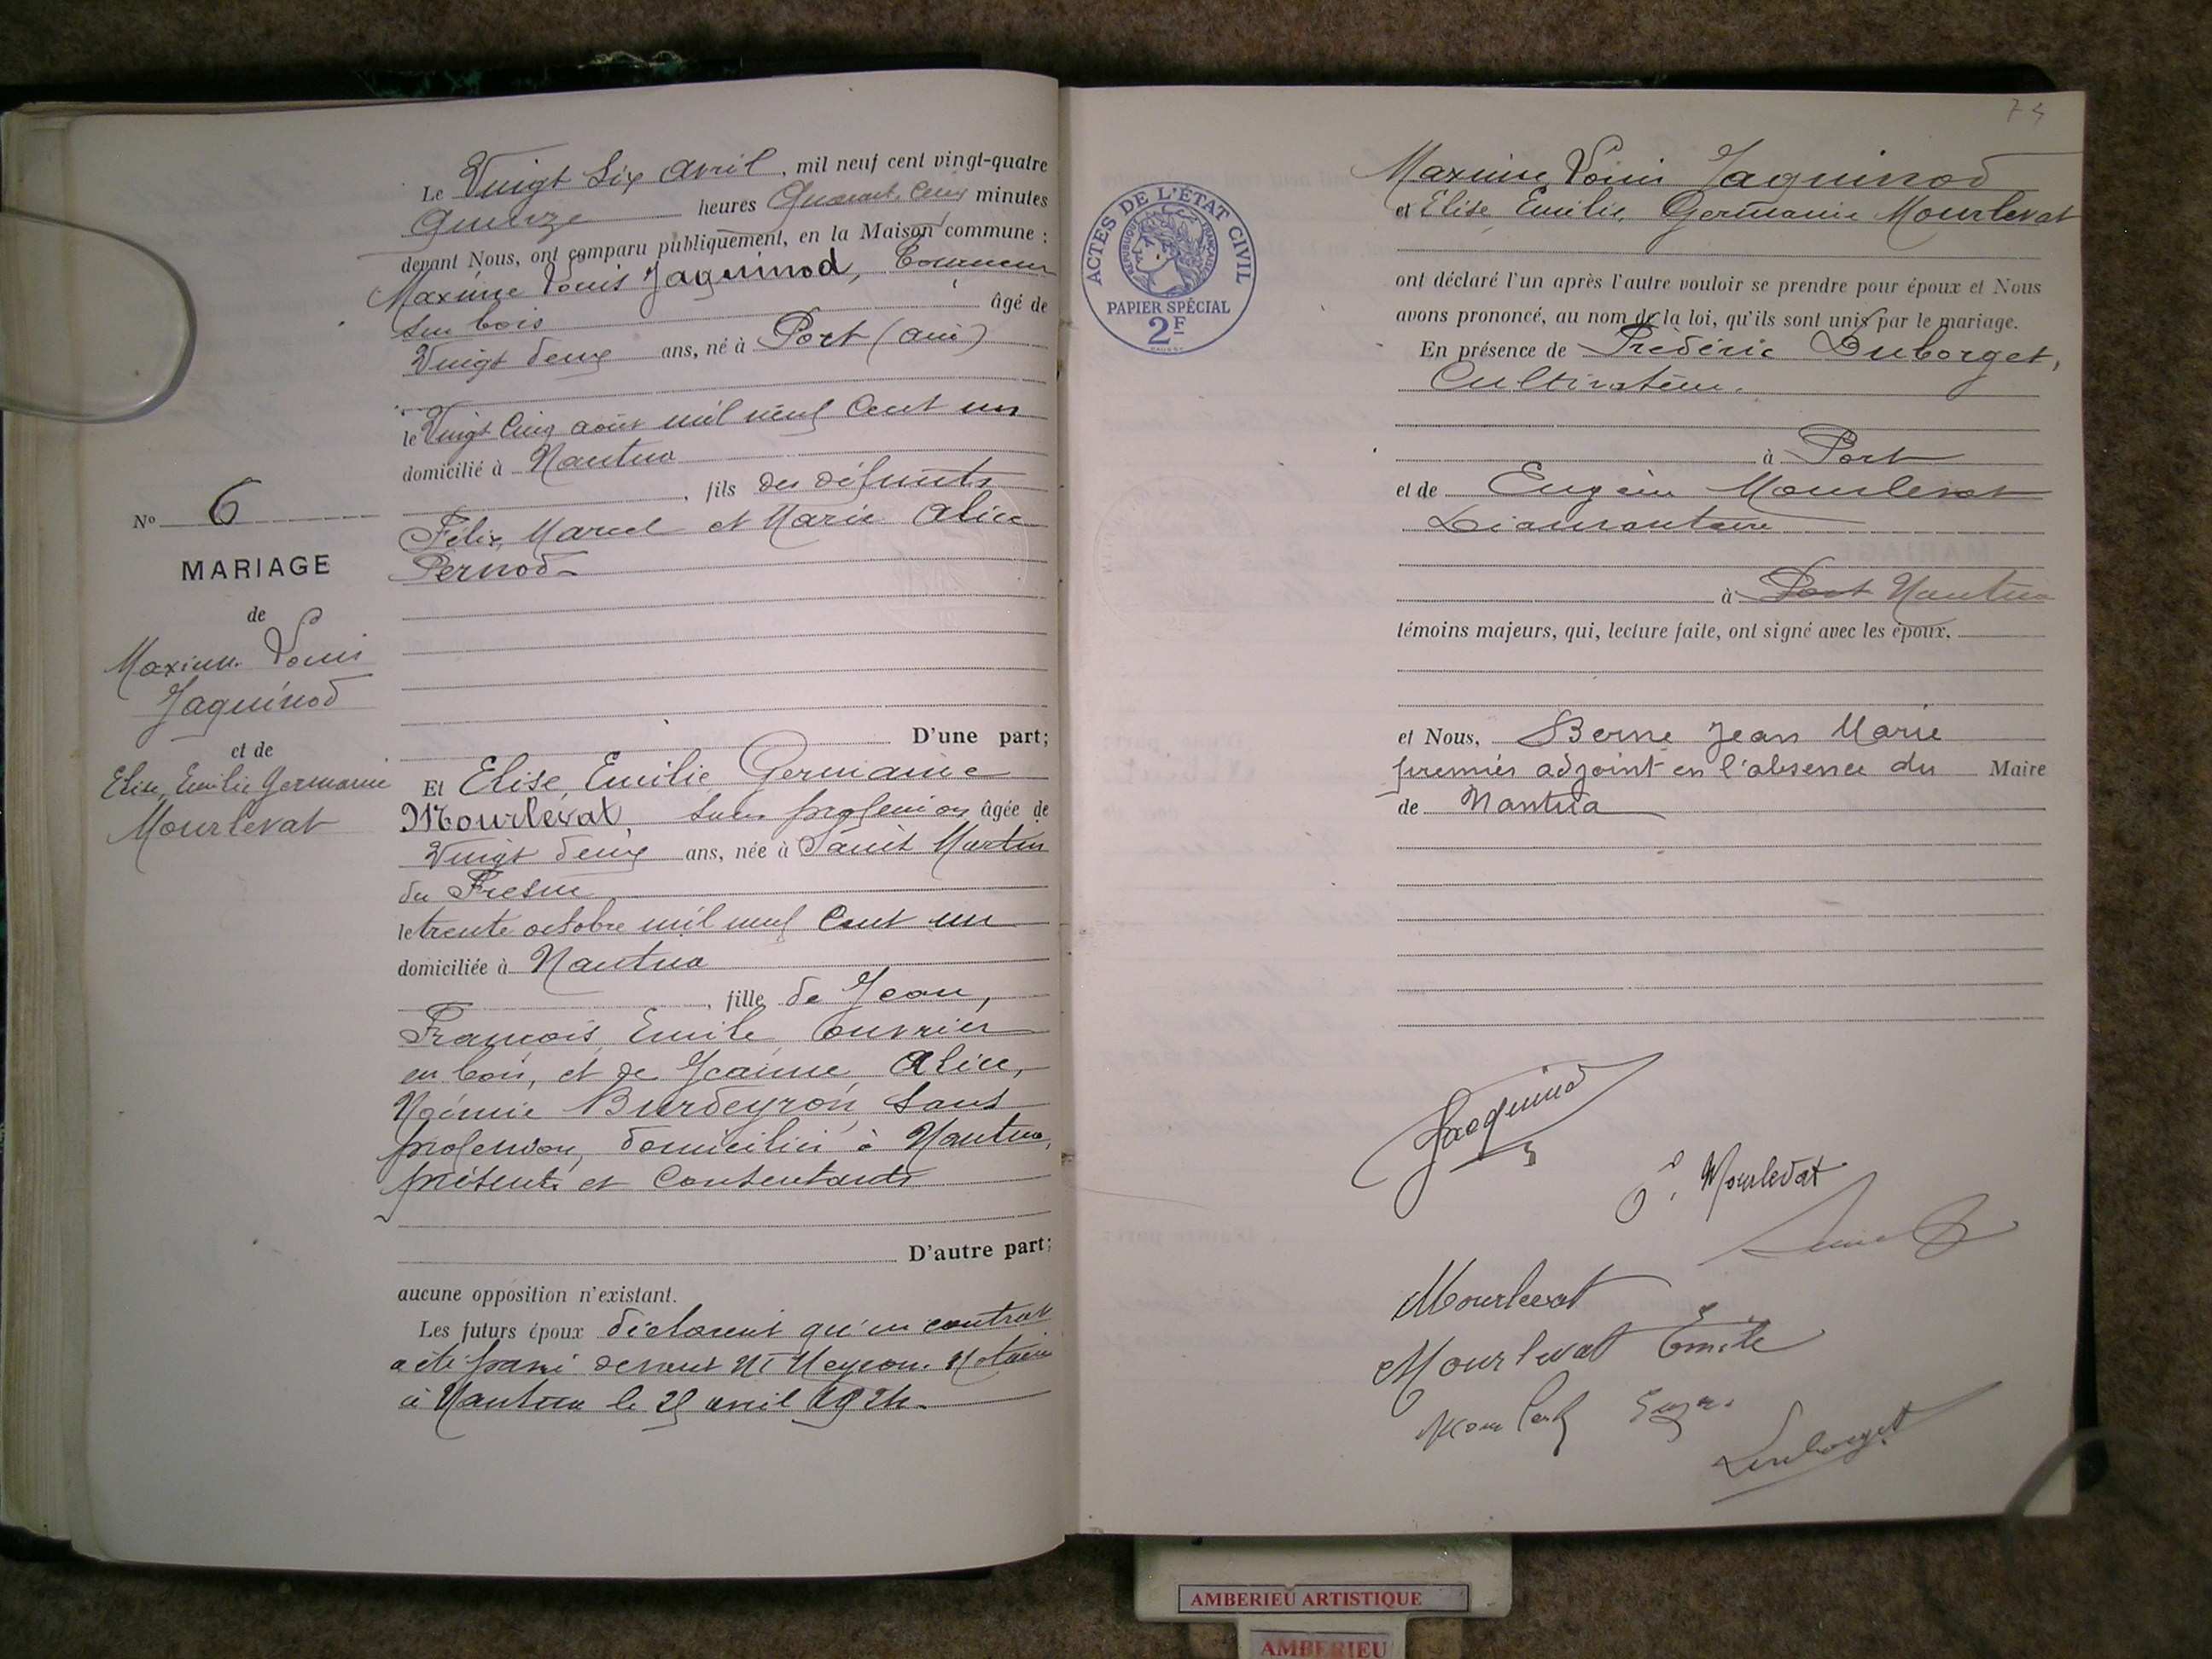 Le Vingt Six Avril, mil neuf cent vingt-quatre
Quinze heures Quarante Cinq minutes
devant Nous, ont comparu publiquement, en la Maison commune :
Maxime Louis Jaquinod, Tourneur
sur bois âgé de
Vingt deux ans, né à Port (Ain)
le Vingt Cinq août mil neuf Cent un
domicilié à Nantua
, fils des défunts
Félix, Marcel et Marie Alice
Pernod
D'une part;
N° 6
MARIAGE
de
Maxime Louis
Jaquinod
et de
Elise, Emilie Germaine
Mourlevat
Et Elise, Emilie, Germaine
Mourlevat, sans profession âgée de
Vingt deux ans, née à Saint Martin
du Fresne
le trente octobre mil neuf Cent un
domiciliée à Nantua
, fille de Jean,
François, Emile, ouvrier
en bois, et de Jeanne, Alice,
Noémie Burdeyron, sans
profession, domiciliés à Nantua,
présents et Consentants
D'autre part;
aucune opposition n'existant.
Les futurs époux déclarent qu'un contrat
a été passé devant Me Notaire
à Nantua le avril 1924.
74
ACTES DE L'ÉTAT CIVIL
RÉPUBLIQUE FRANÇAISE
PAPIER SPÉCIAL
2F
Maxime Louis Jaquinod
et Elise, Emilie, Germaine Mourlevat
ont déclaré l'un après l'autre vouloir se prendre pour époux et Nous
avons prononcé, au nom de la loi, qu'ils sont unis par le mariage.
En présence de Frédéric Duborget,
Cultivateur.
à Port
et de Eugène Mourlevat
Diamantaire
à Port Nantua
témoins majeurs, qui, lecture faite, ont signé avec les époux,
et Nous, Berne Jean Marie
premier adjoint en l'absence du Maire
de Nantua
Jacquinod
Mourlevat
Mourlevat
Mourlevat Emile
Duborget
AMBERIEU ARTISTIQUE
AMBERIEU